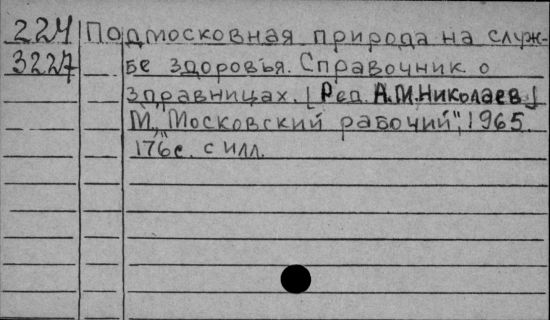 224 Подмосковная природа на служ-
3227 бе здоровья. Справочник о
здравницах. [Ред. А.М.Николаев]
М., "Московский рабочий", 1965.
176с. с илл.